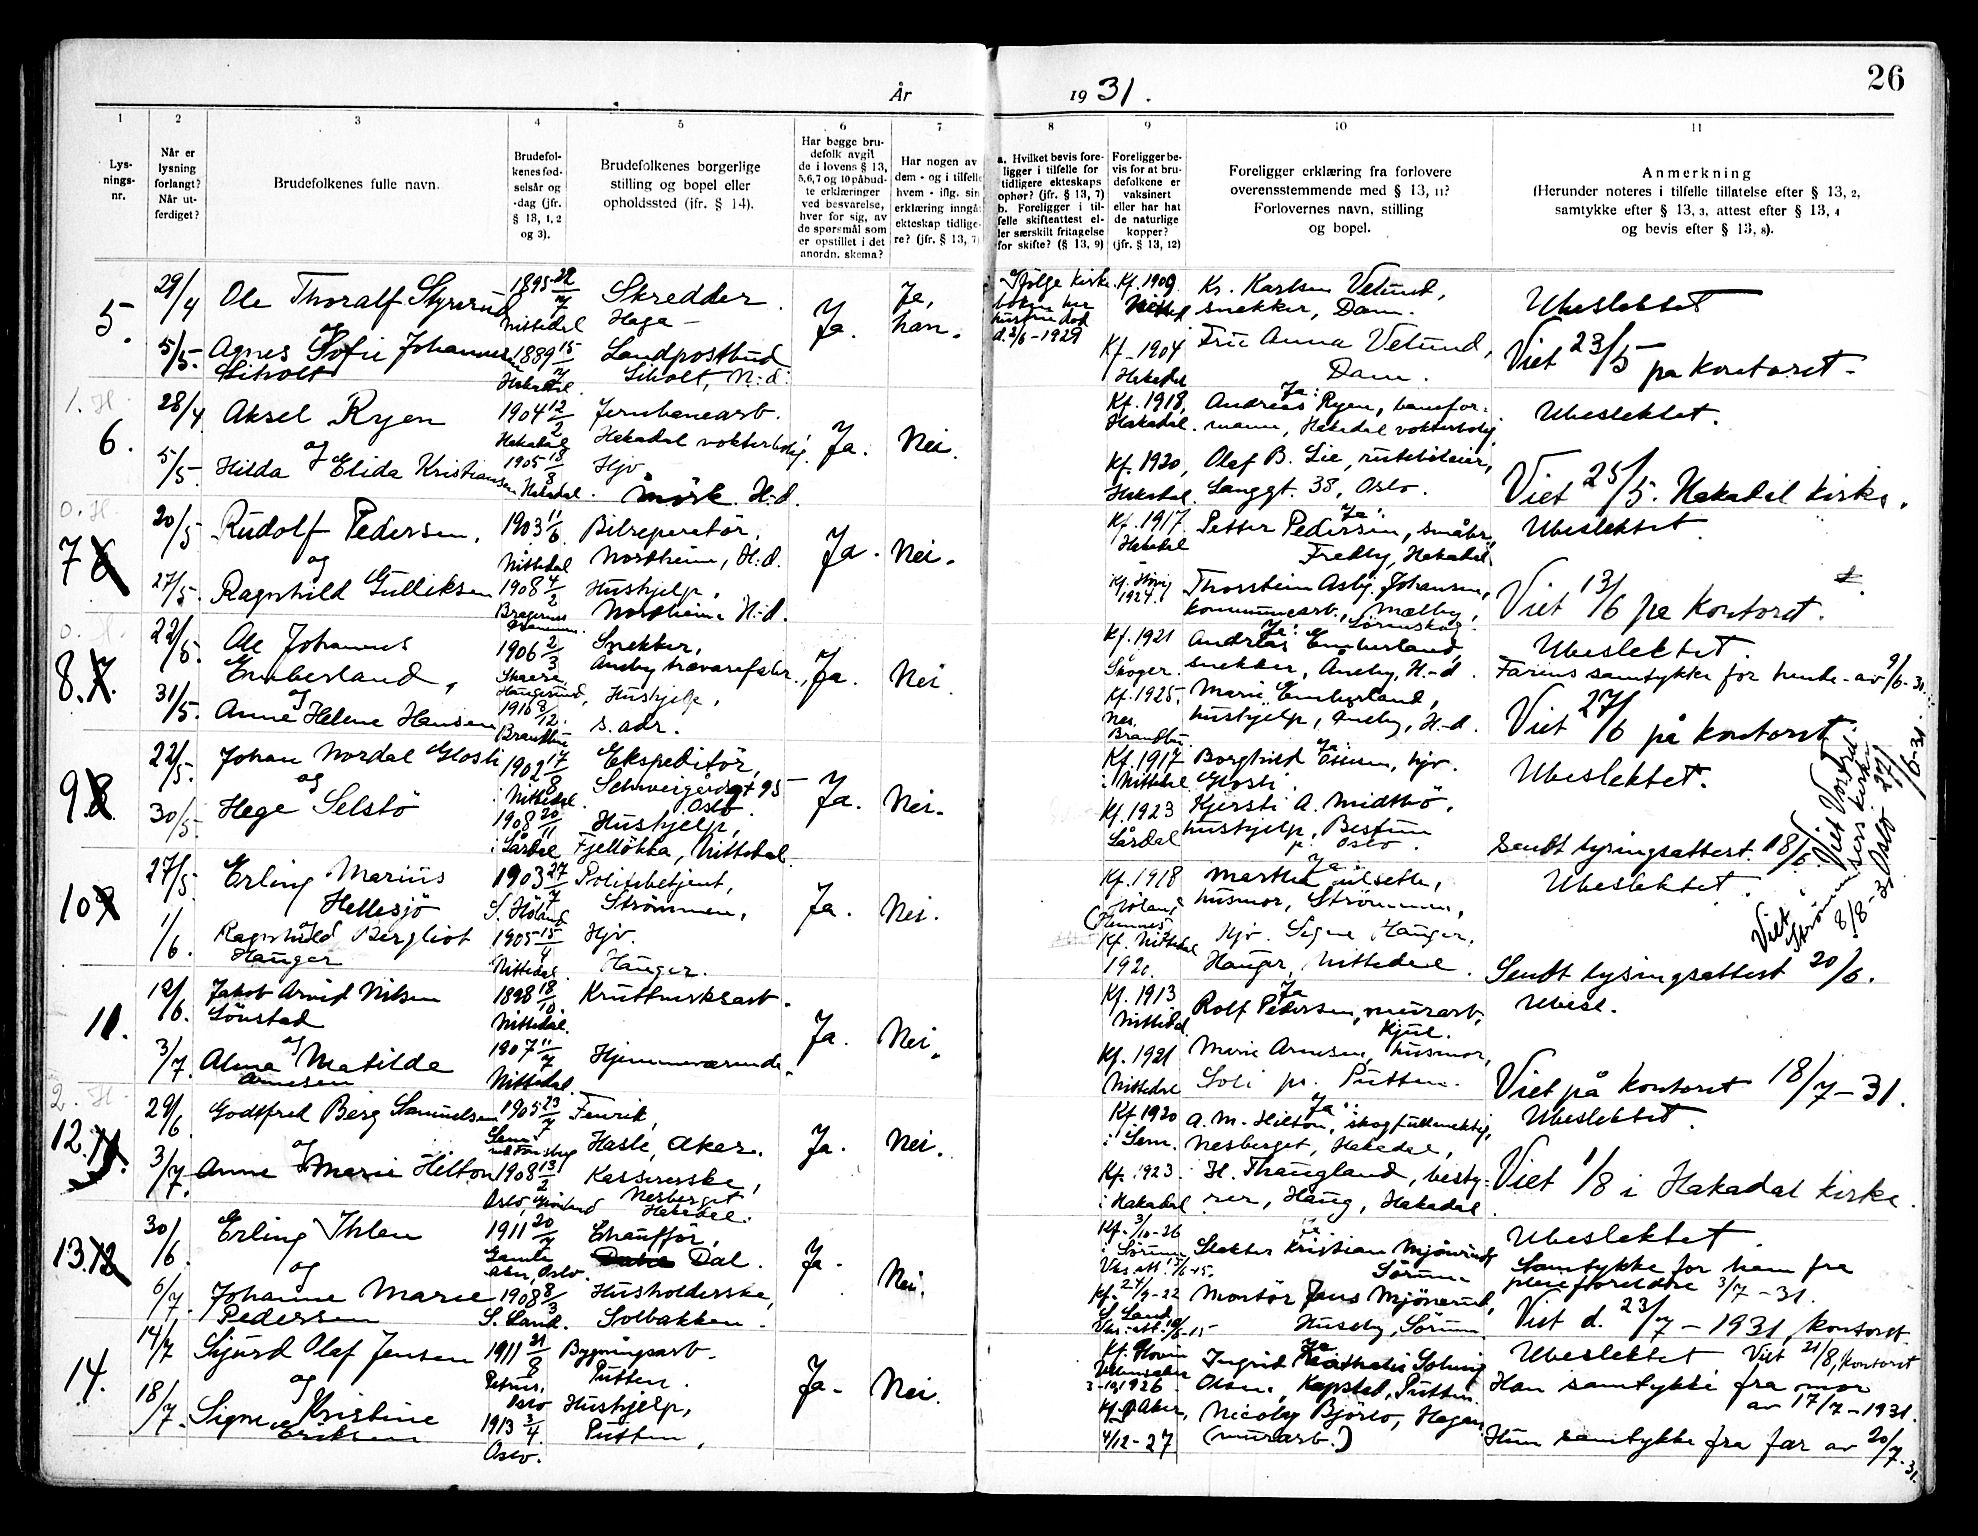 26
År 1931.
1 2 3 4 5 6 7 8 9 10 11
Lys-
nings-
nr.
Når er
lysning
forlangt?
Når ut-
ferdiget?
Brudefolkenes fulle navn.
Brudefol-
kenes fød-
selsår og
-dag (jfr.
§ 13, 1, 2
og 3).
Brudefolkenes borgerlige
stilling og bopel eller
opholdssted (jfr. § 14).
Har begge bru-
defolk avgit
de i lovens § 13,
5,6,7 og 10 påbud-
te erklæringer
ved besvarelse,
hver for sig, av
de spørsmål som
er opstillet i det
anordn. skema?
Har nogen av
dem - og i tilfelle
hvem - iflg. sin
erklæring inngå
ekteskap tidlige-
re? (jfr. § 13, 7)
a. Hvilket bevis fore-
ligger i tilfelle for
tidligere ekteskaps
ophør? (jfr. § 13, 7)
b. Foreligger i til-
felle skifteattest el-
ler særskilt fritagelse
for skifte? (§ 13, 9)
Foreligger be-
vis for at bru-
defolkene er
vaksinert
eller har hat
de naturlige
kopper?
(jfr. § 13, 12)
Foreligger erklæring fra forlovere
overensstemmende med § 13, 11?
Forlovernes navn, stilling
og bopel.
Anmerkning
(Herunder noteres i tilfelle tillatelse efter § 13, 2,
samtykke efter § 13, 3, attest efter § 13, 4
og bevis efter § 13, 8).
5.
29/4
5/5.
Ole Thoralf Styrerud
og
Agnes Sofie Johannesen
Liholt
1895 22/7
Nittedal
1889 15/7
Hakadal
Skredder.
Haga -
Landpostbud
Liholt, N.d.
Ja.
Ja,
han.
Ifølge kirke-
boken her
hustru død
d. 2/6-1929
Kf. 1909
Nitted.
Kf. 1904
Hakadal
Kr. Karlsen Velund,
snekker, Dam.
Fru Anna Velund,
Dam.
Ubeslektet
Viet 23/5 på kontoret -
1. H.
6.
28/4
5/5.
Aksel Ryen
og
Hilda Elida Kristiansen
1904 12/2
Hakadal
1905 18/8
Hakadal.
Jernbanearb.
Hakadal vokterbolig.
Hjv.
Mørk H-d.
Ja.
Nei.
Kf. 1918,
Hakadal.
Kf. 1920,
Hakadal.
Ja:
Andreas Ryen, banefor-
mann, Hakadal vokterbolig
Olaf B. Lie, rutebileier,
Langgt. 38, Oslo.
Ubeslektet.
Viet 25/5. Hakadal kirke.
0. H.
7
20/5
27/5.
Rudolf Pedersen,
og
Ragnhild Gulliksen
1903 11/6
Nittedal
1908 4/2
Bragernes
Drammen.
Bilreperatør,
Nordheim, H.d.
Hushjelp,
Nordheim H-d.
Ja.
Nei.
Kf. 1917
Hakadal
1924.
Ja:
Petter Pedersen, småbr.,
Fredby, Hakadal
Thorstein Asbj. Johansen,
kommunearb., Mælby,
Sørumskog.
Ubeslektet
Viet 13/6 på kontoret.
0. H.
8.
22/5.
31/5.
Ole Johannes
Emberland,
og
Anne Helene Hansen
1906 2/3
1910 8/12.
Brandbu
Snekker,
Aneby trævarefabr.,
Hushjelp,
s. adr.
Ja.
Nei
Kf. 1921
Skoger.
Kf. 1925.
Nes,
Brandbu.
Ja:
Andreas Emberland,
snekker, Åneby, H-d.
Marie Emberland,
hushjelp, Aneby, H-d.
Ubeslektet.
Farens samtykke for hende - av 9/6-31.
Viet 27/6 på kontoret
9
22/5.
30/5.
Johan Nordal Glosli
og
Hege Selstö
1902 17/8
i Nittedal.
1908 20/11
i Sårdal
Ekspeditør,
Schweigårdsgt 95
Oslo
Hushjelp,
Fjelløkka, Nittedal.
Ja.
Nei.
Kf. 1917
i Nittedal
Kf. 1923
Sårdal
Ja:
Borghild Olsen, hjv.
Glosli.
Kjersti A. Midtbö.
hushjelp, Bestum
p. Oslo.
Ubeslektet.
Sendt lysingsattest 18/6.
Oslo 27/6-31
10
27/5.
1/6.
Erling Marius
Hellesjö
og
Ragnhild Bergliot
Hauger
1903 27/7
S. Höland
1905 15/4
Nittedal.
Politibetjent,
Strömmen,
Hjv.
Hauger.
Ja.
Nei.
Kf. 1918
Höland
(Hemnes)
Kf. Nittedal
1920.
Ja
Martha Nilsette,
husmor, Strömmen,
Hjv. Signe Hauger,
Hauger, Nittedal.
Ubeslektet.
Viet i
8/8-31
Sendt lysingsattest 20/6.
11.
12/6
3/7.
Jakob Arvid Nilsen
Lönstad
og
Alma Matilde
Arnesen
1898 18/10
Nittedal.
1907 11/7
Nittedal
Kruttverksarb.
Hjemmeværende.
Ja.
Nei.
Kf. 1913
Nittedal
Kf. 1921
Nittedal
Ja
Rolf Pedersen, murarb,
Kjul.
Marie Arnesen, husmor,
Soli pr. Tutten.
Ubesl.
Viet på kontoret 18/7-31.
2. H.
12.
29/6
3/7.
Godtfred Berg Samuelsen
og
Anne Marie Hilton
1905 23/7
Sem
1908 13/2
Oslo,
Fenrik,
Hasle, Aker.
Kassererske,
Nesberget
Hakadal.
Ja.
Nei.
Kf. 1920
i Sem.
Kf. 1923
i Hakadal
Ja:
A. M. Hilton, skogfullmektig,
Nesberget, Hakadal,
H. Thaugland, besty-
rer, Haug, Hakadal.
Ubeslektet.
Viet 1/8 i Hakadal kirke.
13.
30/6
6/7.
Erling Ihlen
og
Johanne Marie
Pedersen
1911 20/7
Gamle
Aker, Oslo.
1908 8/3
S. Land.
Chaufför,
Dal.
Husholderske,
Solbakken.
Ja.
Nei.
Kf. 3/10-26
i Sörum
Kf. 24/9-22
S. Land.
Ja.
Slakter Kristian Mjönerud
Sörum
Montör Jens Mjönerud,
Huseby, Sörum.
Ubeslektet.
Samtykke for ham fra
pleieforeldre 3/7-31.
Viet d. 23/7-1931, kontoret.
14.
14/7
18/7.
Sigurd Olaf Jensen
og
Signe Kristine
Eriksen
1911 21/8
Petrus,
Oslo
1913 3/4
Oslo.
Bygningsarb.
Tutten.
Hushjelp,
Tutten,
Ja.
Nei.
1926
Aker,
4/12-27
Ja
Ingrid Solveig
Olsen, Kapstad, Tutten.
Nicolay Björlo, Hagen
(murarb.)
Ubeslektet Viet 21/8, kontoret
Han samtykke fra mor
av 17/7-1931.
Hun samtykke fra far av 20/7-31.